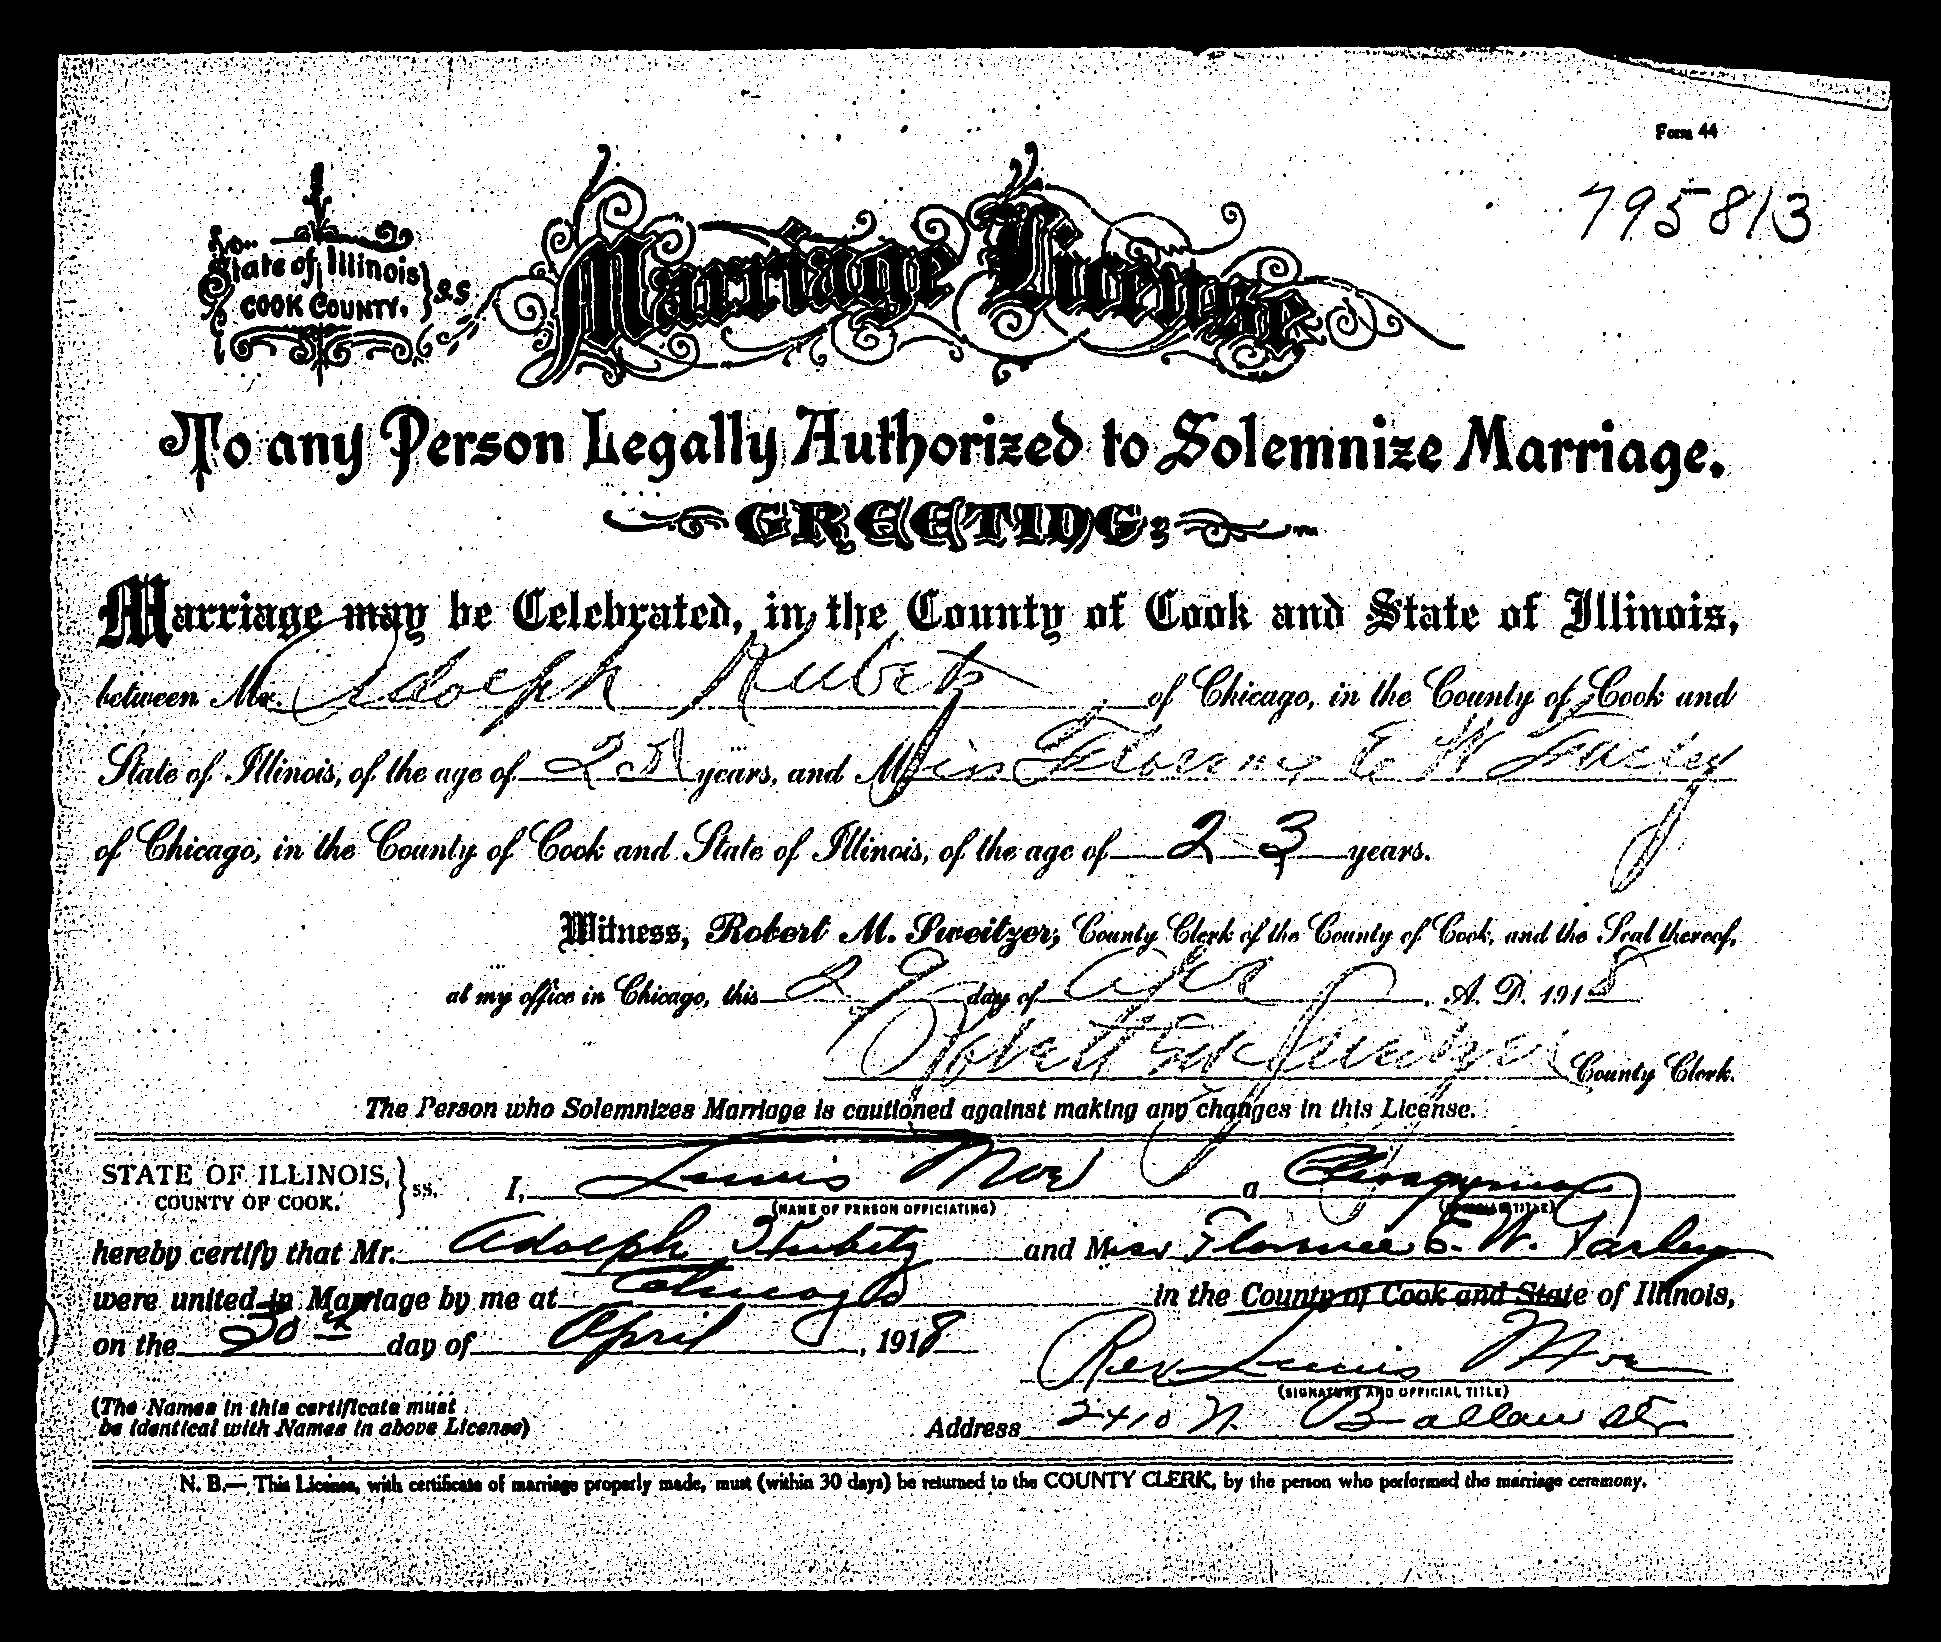 Form 44
795813
State of Illinois
COOK COUNTY. } S.S
Marriage License
To any Person Legally Authorized to Solemnize Marriage.
GREETING:
Marriage may be Celebrated, in the County of Cook and State of Illinois,
between Mr. Adolph Kubetz of Chicago, in the County of Cook and
State of Illinois, of the age of 25 years, and Miss Florence E W Farley
of Chicago, in the County of Cook and State of Illinois, of the age of 23 years.
Witness, Robert M. Sweitzer, County Clerk of the County of Cook, and the Seal thereof,
at my office in Chicago, this 29 day of Apr A. D. 1918
Robert M Sweitzer County Clerk.
The Person who Solemnizes Marriage is cautioned against making any changes in this License.
STATE OF ILLINOIS, } ss. I, Lewis Moe a Clergyman
COUNTY OF COOK.
(NAME OF PERSON OFFICIATING) (OFFICIAL TITLE)
hereby certify that Mr. Adolph Kubetz and Miss Florence E. W. Farley
were united in Marriage by me at Chicago in the County of Cook and State of Illinois,
on the 30th day of April, 1918
Rev Lewis Moe
(SIGNATURE AND OFFICIAL TITLE)
(The Names in this certificate must
be identical with Names in above License)
Address 2410 N. Ballou St.
N. B.— This License, with certificate of marriage properly made, must (within 30 days) be returned to the COUNTY CLERK, by the person who performed the marriage ceremony.